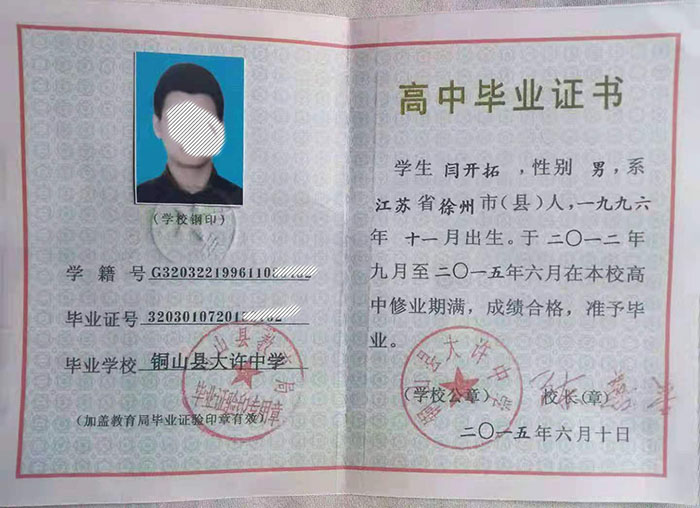 (学校钢印)
学籍号 G32032219961108
毕业证号 320301072015
毕业学校 铜山县大许中学
(加盖教育局毕业证验印章有效)
铜山县教育局
毕业证验印专用章
高中毕业证书
学生 闫开拓 ,性别 男 ,系
江苏省徐州市(县)人,一九九六
年 十一月出生。于二〇一二年
九月至二〇一五年六月在本校高
中修业期满,成绩合格,准予毕
业。
铜山县大许中学
(学校公章) 校长(章)
二〇一五年六月十日